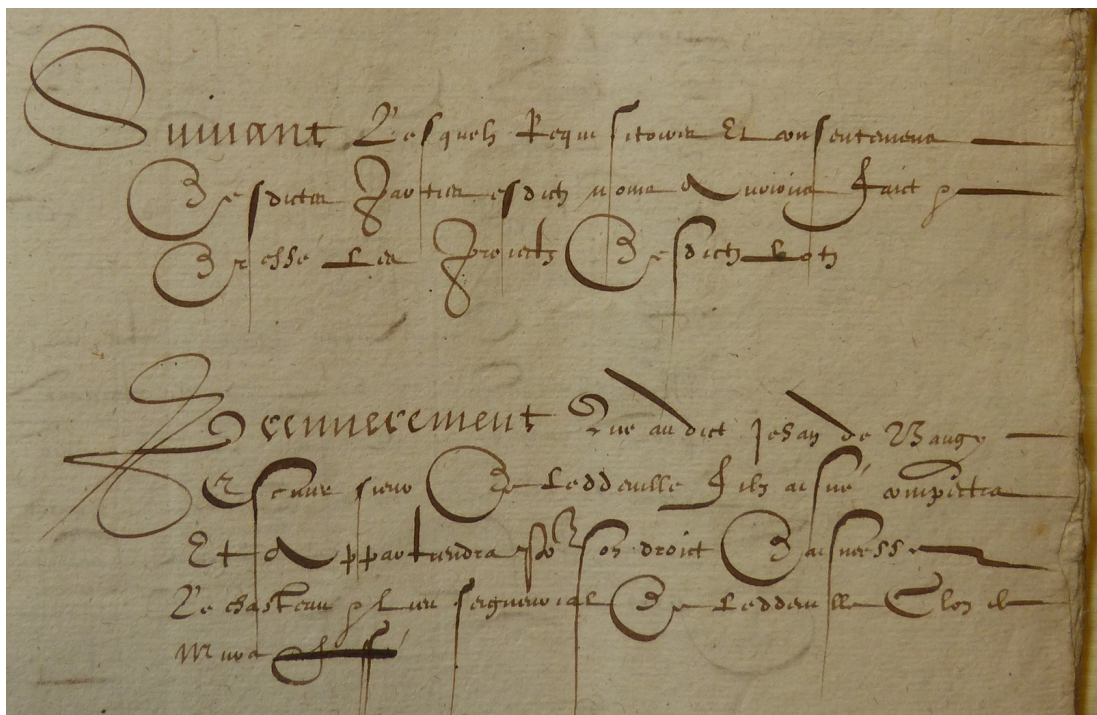 Suivant Lesquelz Requisitoires Et consentemens
Desdictes Parties esdictz noms Avions faict &
Dressé Les Projectz Desdictz Lotz
Premierement Que audict Jehan de Baugy
Escuier sieur De Leddeville filz aisné compettra
Et Appartiendra Po^r son droict D'aisnesse
Le chasteau & lieu seigneurial De Leddeville Clos de
Murs